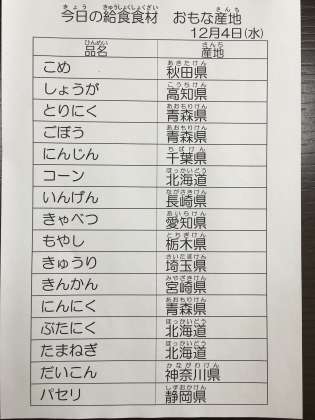 今日の給食食材　おもな産地
12月4日(水)
品名　産地
こめ　秋田県
しょうが　高知県
とりにく　青森県
ごぼう　青森県
にんじん　千葉県
コーン　北海道
いんげん　長崎県
きゃべつ　愛知県
もやし　栃木県
きゅうり　埼玉県
きんかん　宮崎県
にんにく　青森県
ぶたにく　北海道
たまねぎ　北海道
だいこん　神奈川県
パセリ　静岡県